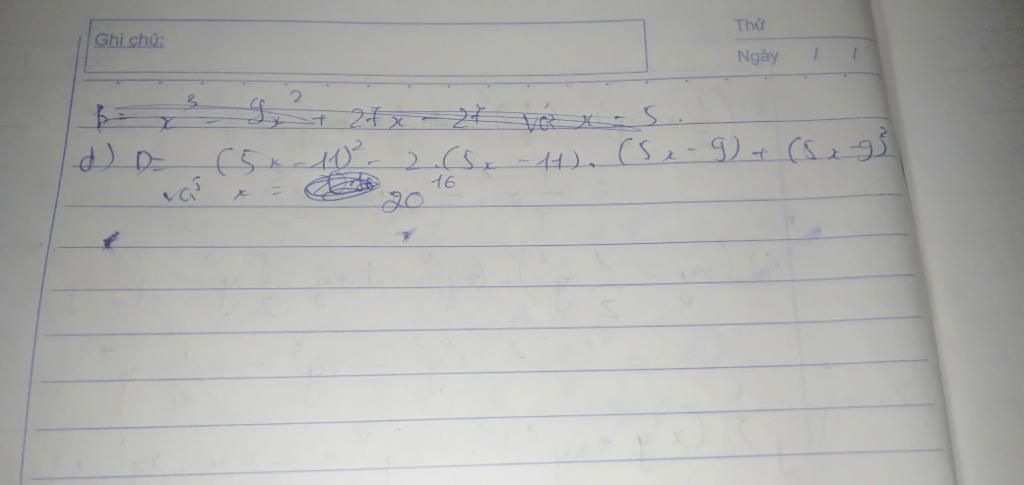 Ghi chú:
Thứ
Ngày / /
B = x³ - 9x² + 27x - 27 với x = 5.
d) D = (5x - 11)² - 2.(5x - 11).(5x - 9) + (5x - 9)²
với x = 20¹⁶